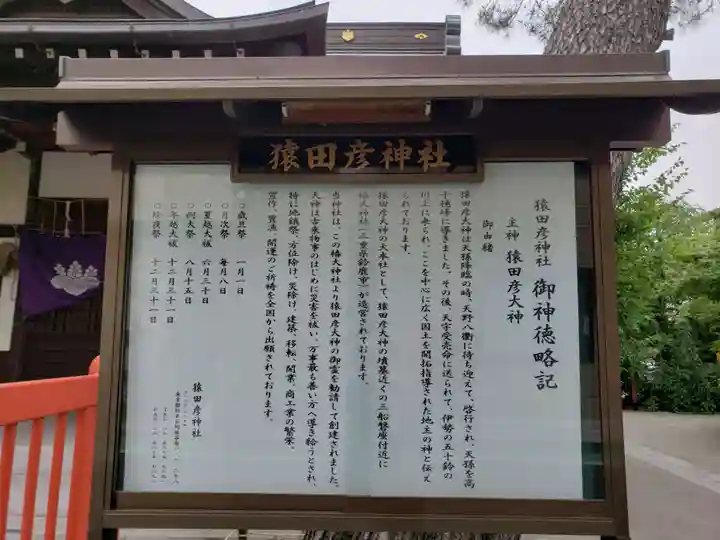 猿田彦神社
猿田彦神社 御神徳略記
主神 猿田彦大神
御由緒
猿田彦大神は天孫降臨の時、天野八衢に待ち迎えて、啓行され、天孫を高
千穂峰に導きました。その後、天宇受売命に送られて、伊勢の五十鈴の
川上に来られ、ここを中心に広く国土を開拓指導された地主の神と伝え
られております。
猿田彦大神の大本社として、猿田彦大神の墳墓近くの三船磐座付近に
椿大神社(三重県鈴鹿市)が造営されております。
当神社は、この椿大神社より猿田彦大神の御霊を勧請して創建されました。
大神は古来物事のはじめに災害を祓い、万事最も善い方へ導き給うとされ、
特に地鎮祭、方位除け、災除け、建築、移転、開業、商工業の繁栄、
豊漁、開運のご祈祷を全国から出願されております。
○歳旦祭 一月一日
○月次祭 毎月八日
○夏越大祓 六月三十日
○例大祭 八月十五日
○年越大祓 十二月三十一日
○除夜祭 十二月三十一日
猿田彦神社